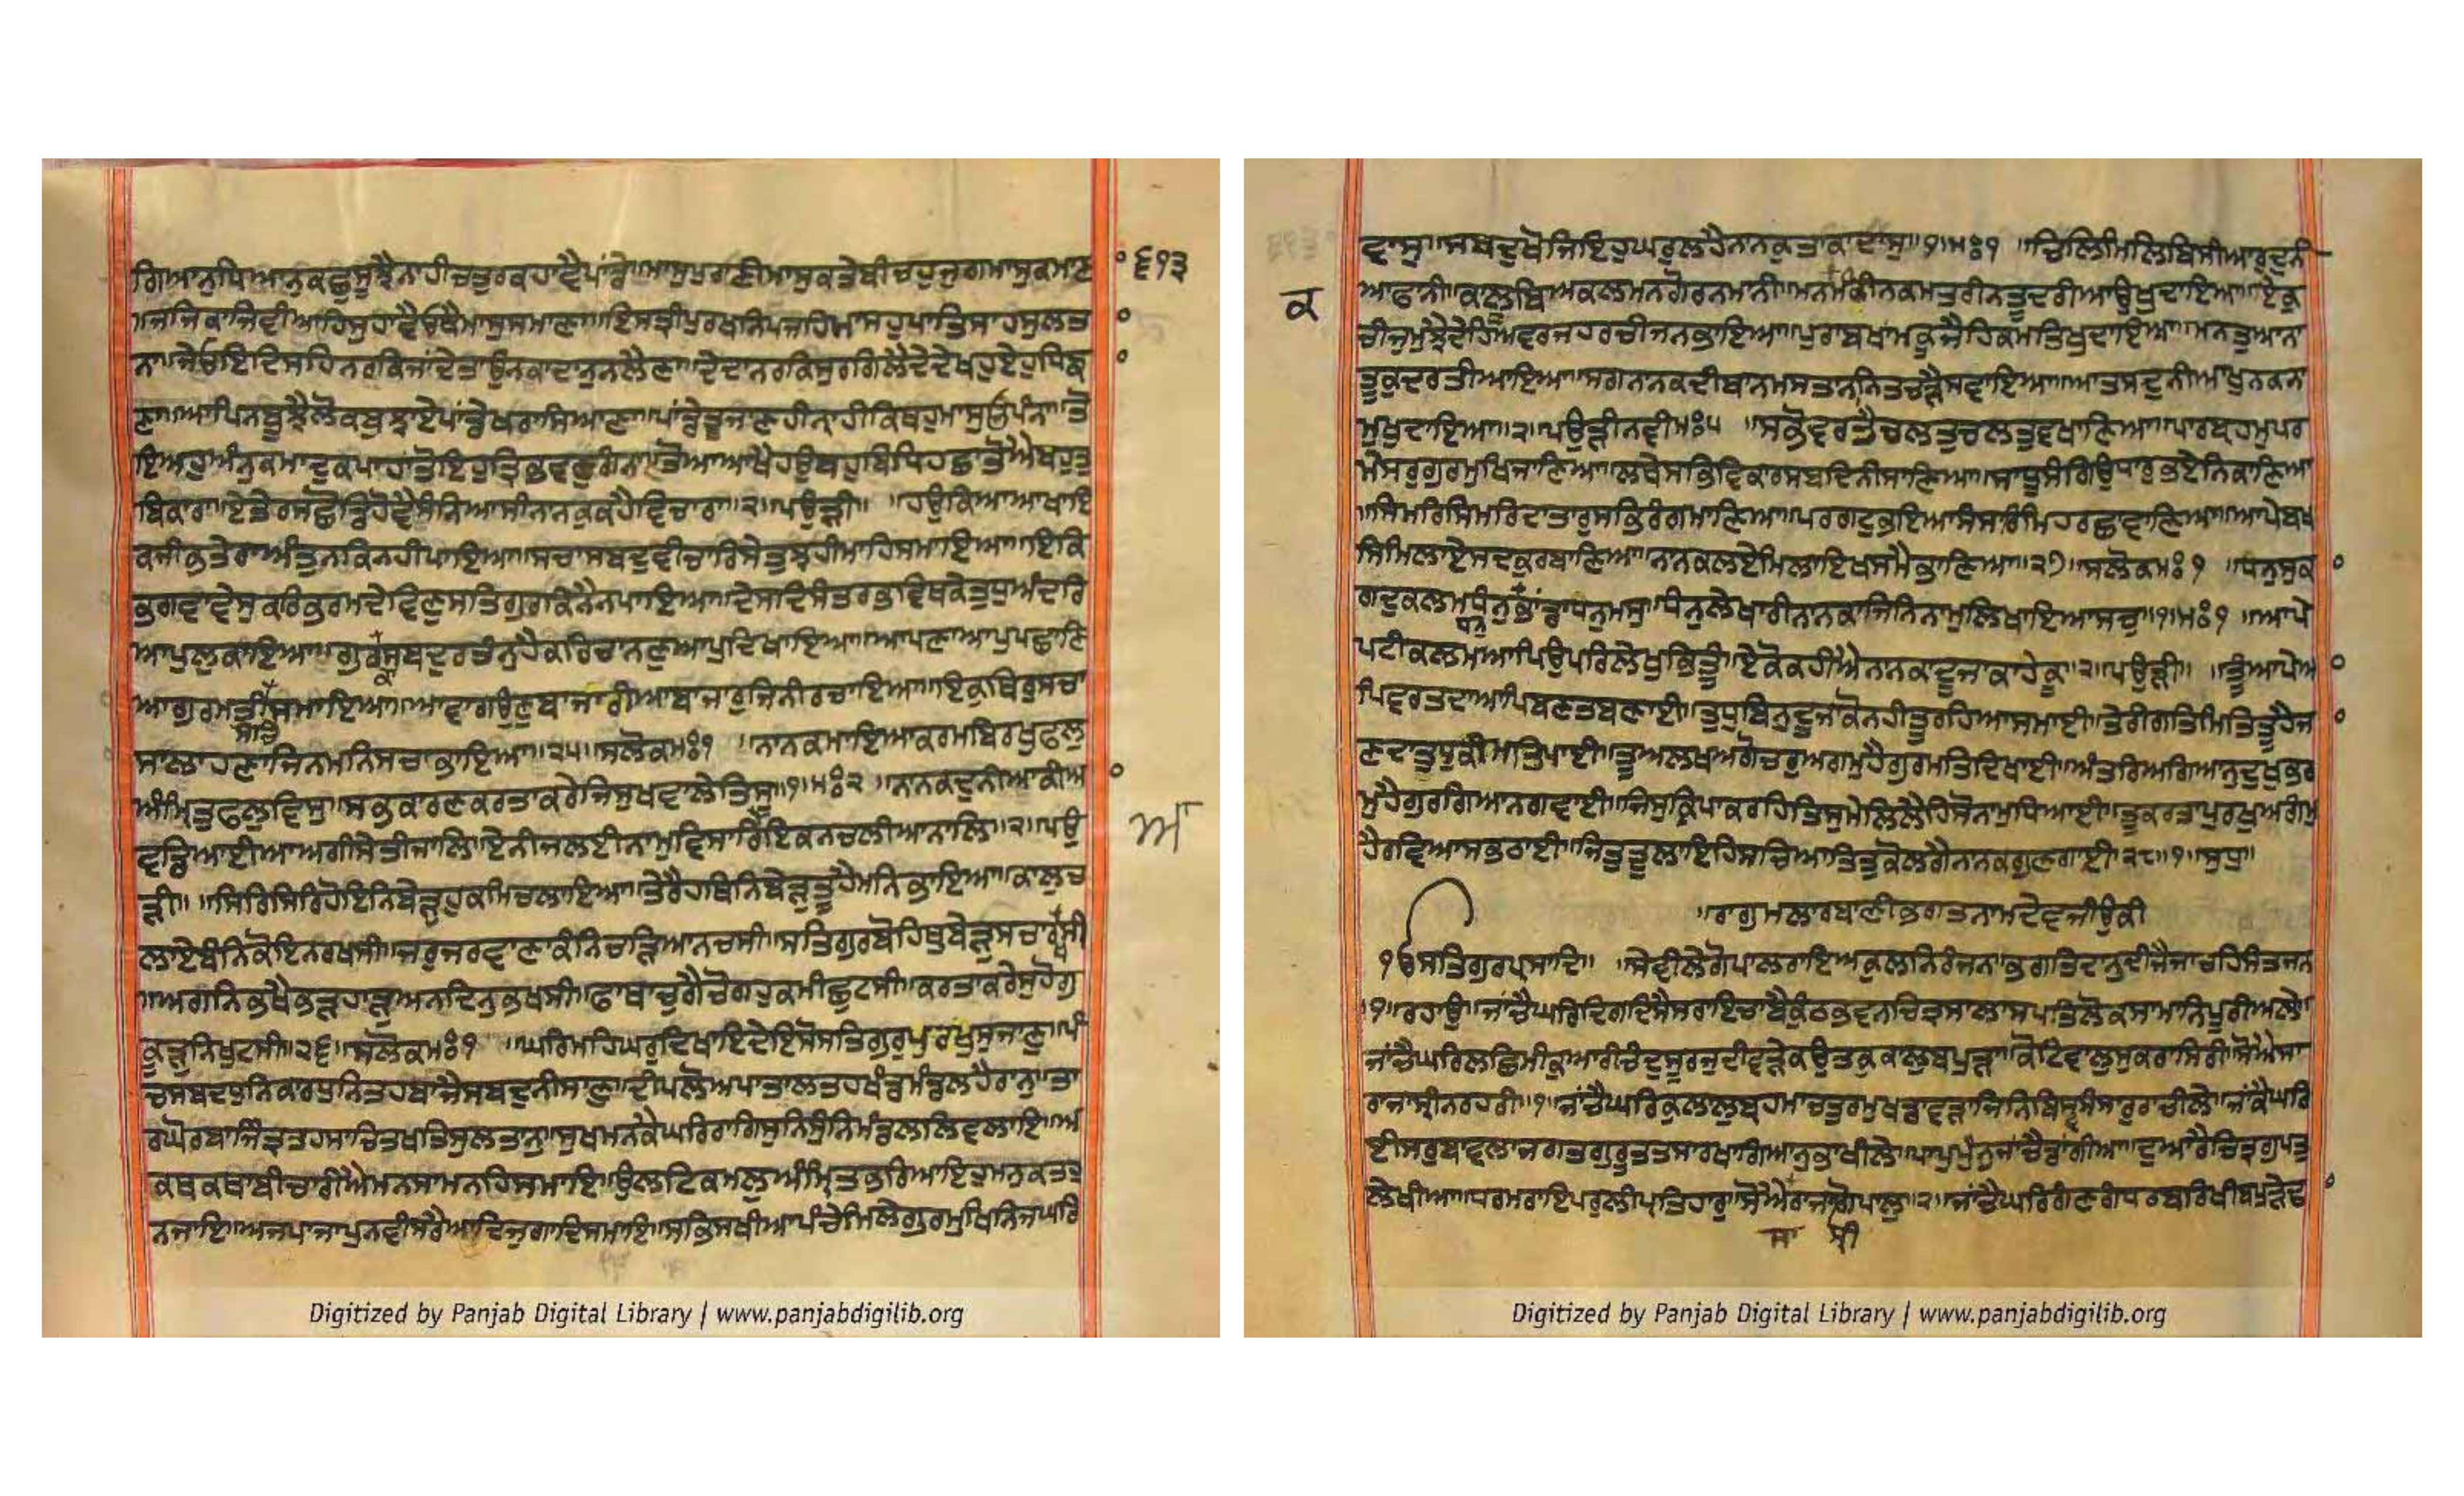 ਗਿਆਨੁਧਿਆਨੁਕਛੁਸੂਝੈਨਾਹੀਚਤੁਰੁਕਹਾਵੈਪਾਂਡੇ॥ਮਾਸੁਪੁਰਾਣੀਮਾਸੁਕਤੇਬੀਚਹੁਜੁਗਿਮਾਸੁਕਮਾਣਾ ੬੧੩
॥ਜਜਿਕਾਜਿਵੀਆਹਿਸੁਹਾਵੈਓਥੈਮਾਸੁਸਮਾਣਾ॥ਇਸਤ੍ਰੀਪੁਰਖਨਿਪਜਹਿਮਾਸਹੁਪਾਤਿਸਾਹਸੁਲਤਾ
ਨਾ॥ਜੇਓਇਦਿਸਹਿਨਰਕਿਜਾਂਦੇਤਾਉਨਕਾਦਾਨੁਨਲੈਣਾ॥ਦੇਦਾਨਰਕਿਸੁਰਗਿਲੈਦੇਦੇਖਹੁਏਹੁਧਿਙਾ
ਣਾ॥ਆਪਿਨਬੂਝੈਲੋਕਬੁਝਾਏਪਾਂਡੇਖਰਾਸਿਆਣਾ॥ਪਾਂਡੇਤੂਜਾਣਹੀਨਾਹੀਕਿਥਹੁਮਾਸੁਓਪੰਨਾ॥ਤੋ
ਇਅਹੁਅੰਨੁਕਮਾਦੁਕਪਾਹਾਂਤੋਇਹੁਤ੍ਰਿਭਵਣੁਗੰਨਾ॥ਤੋਆਆਖੈਹਉਬਹੁਬਿਧਿਹਛਾਤੋਐਬਹੁਤੁ
ਬਿਕਾਰਾ॥ਏਤੇਰਸਛੋਡਿਹੋਵੈਸੰਨਿਆਸੀਨਾਨਕੁਕਹੈਵਿਚਾਰਾ॥੨॥ਪਉੜੀ॥ ਹਉਕਿਆਆਖਾਇ
ਕਜੀਭਤੇਰਾਅੰਤੁਨਕਿਨਹੀਪਾਇਆ॥ਸਚਾਸਬਦੁਵੀਚਾਰਿਸੇਤੁਝਹੀਮਾਹਿਸਮਾਇਆ॥ਇਕਿ
ਭਗਵਾਵੇਸੁਕਰਿਭਰਮਦੇਵਿਣੁਸਤਿਗੁਰਕਿਨੈਨਪਾਇਆ॥ਦੇਸਦਿਸੰਤਰਭਵਿਥਕੇਤੁਧੁਅੰਦਰਿ
ਆਪੁਲੁਕਾਇਆ॥ਗੁਰਕਾਸਬਦੁਰਤੰਨੁਹੈਕਰਿਚਾਨਣੁਆਪਿਦਿਖਾਇਆ॥ਆਪਣਾਆਪੁਪਛਾਣਿ
ਆਗੁਰਮਤੀਸਚਿਸਮਾਇਆ॥ਆਵਾਗਉਣੁਬਾਜਾਰੀਆਬਾਜਾਰੁਜਿਨੀਰਚਾਇਆ॥ਇਕੁਥਿਰੁਸਚਾ
ਸਾਲਾਹਣਾਜਿਨਮਨਿਸਚਾਭਾਇਆ॥੨੫॥ਸਲੋਕਮਃ੧ ॥ਨਾਨਕਮਾਇਆਕਰਮਬਿਰਖੁਫਲ
ਅੰਮ੍ਰਿਤਫਲਵਿਸੁ॥ਸਭਕਾਰਣਕਰਤਾਕਰੇਜਿਸੁਖਵਾਲੇਤਿਸੁ॥੧॥ਮਃ੨ ॥ਨਾਨਕਦੁਨੀਆਕੀਆ
ਵਡਿਆਈਆਅਗੀਸੇਤੀਜਾਲਿ॥ਏਨੀਜਲਈਨਾਮੁਵਿਸਾਰਿਆਇਕਨਚਲੀਆਨਾਲਿ॥੨॥ਪਉ ਅੰ
ੜੀ॥ ॥ਸਿਰਿਸਿਰਿਹੋਇਨਿਬੇੜੁਹੁਕਮਿਚਲਾਇਆ॥ਤੇਰੈਹਥਿਨਿਬੇੜੁਤੂਹੈਮਨਿਭਾਇਆ॥ਕਾਲੁਚ
ਲਾਏਬੰਨਿਕੋਇਨਰਖਸੀ॥ਜਰੁਜਰਵਾਣਾਕੰਨਿਚੜਿਆਨਚਸੀ॥ਸਤਿਗੁਰਬੋਹਿਥੁਬੇੜੁਸਚਾਰਖਸੀ
॥ਅਗਨਿਭਖੈਭੜਹਾੜੁਅਨਦਿਨੁਭਖਸੀ॥ਫਾਥਾਚੁਗੈਚੋਗਹੁਕਮੀਛੁਟਸੀ॥ਕਰਤਾਕਰੇਸੁਹੋਗੁ
ਕੂੜੁਨਿਖੁਟਸੀ॥੨੬॥ਸਲੋਕਮਃ੧ ॥ਘਰਿਮਹਿਘਰੁਦਿਖਾਇਦੇਇਸੋਸਤਿਗੁਰੁਪੁਰਖੁਸੁਜਾਣੁ॥ਪੰ
ਚਸਬਦਧੁਨਿਕਾਰਧੁਨਿਤਹਬਾਜੈਸਬਦੁਨੀਸਾਣੁ॥ਦੀਪਲੋਅਪਾਤਾਲਤਹਖੰਡਮੰਡਲਹੈਰਾਨੁ॥ਤਾ
ਰਘੋਰਬਾਜਿੰਤ੍ਰਤਹਸਾਚਿਤਖਤਿਸੁਲਤਾਨੁ॥ਸੁਖਮਨਕੈਘਰਿਰਾਗਿਸੁਨਿਸੁੰਨਿਮੰਡਲਲਿਵਲਾਇ॥ਅ
ਕਥਕਥਾਬੀਚਾਰੀਐਮਨਸਾਮਨਹਿਸਮਾਇ॥ਉਲਟਿਕਮਲੁਅੰਮ੍ਰਿਤਭਰਿਆਇਹੁਮਨੁਕਤਹੁ
ਨਜਾਇ॥ਅਜਪਾਜਾਪੁਨਵੀਸਰੈਆਦਿਜੁਗਾਦਿਸਮਾਇ॥ਸਭਿਸਖੀਆਪੰਚੇਮਿਲੇਗੁਰਮੁਖਿਨਿਜਘਰਿ
Digitized by Panjab Digital Library | www.panjabdigilib.org
ਵਾਸੁ॥ਸਬਦੁਖੋਜਿਇਹੁਘਰੁਲਹੈਨਾਨਕੁਤਾਕਾਦਾਸੁ॥੧॥ਮਃ੧ ॥ਚਿਲਿਮਿਲਿਬਿਸੀਆਰਦੁਨੀ
ਆਫਾਨੀ॥ਕਾਲੂਬਿਅਕਲਮਨਗੋਰਨਮਾਨੀ॥ਮਨਮਕੀਨਕਮਤਰੀਨਤੂਦਰੀਆਉਖੁਦਾਇਆ॥ਏਕੁ
ਕ ਚੀਜੁਮੁਝੈਦੇਹਿਅਵਰਜਹਰਚੀਜਨਭਾਇਆ॥ਪੁਰਾਬਖਾਮਕੂਜੈਹਿਕਮਤਿਖੁਦਾਇਆ॥ਮਨਤੁਆਨਾ
ਤੂਕੁਦਰਤੀਆਇਆ॥ਸਗਨਾਨਕਦੀਬਾਨਮਸਤਾਨਾਨਿਤਚੜੈਸਵਾਇਆ॥ਆਤਸਦੁਨੀਆਖੁਨਕਨਾ
ਮੁਖੁਦਾਇਆ॥੨॥ਪਉੜੀਨਵੀਮਃ੫ ॥ਸਭੋਵਰਤੈਚਲਤੁਚਲਤੁਵਖਾਣਿਆ॥ਪਾਰਬ੍ਰਹਮੁਪਰ
ਮੇਸਰੁਗੁਰਮੁਖਿਜਾਣਿਆ॥ਲਥੇਸਭਿਵਿਕਾਰਸਬਦਿਨੀਸਾਣਿਆ॥ਸਾਧੂਸੰਗਿਉਧਾਰੁਭਏਨਿਕਾਣਿਆ
॥ਸਿਮਰਿਸਿਮਰਿਦਾਤਾਰੁਸਭਿਰੰਗਮਾਣਿਆ॥ਪਰਗਟੁਭਇਆਸੰਸਾਰਿਮਿਹਰਛਾਵਾਣਿਆ॥ਆਪੇਬਖ
ਸਿਮਿਲਾਏਸਦਕੁਰਬਾਣਿਆ॥ਨਾਨਕਲਏਮਿਲਾਇਖਸਮੈਭਾਣਿਆ॥੨੭॥ਸਲੋਕਮਃ੧ ॥ਧੰਨੁਸੁਕਾ
ਗਦੁਕਲਮਧੰਨੁਧਨੁਭਾਂਡਾਧਨੁਮਸੁ॥ਧੰਨੁਲੇਖਾਰੀਨਾਨਕਾਜਿਨਿਨਾਮੁਲਿਖਾਇਆਸਚੁ॥੧॥ਮਃ੧ ॥ਆਪੇ
ਪਟੀਕਲਮਆਪਿਉਪਰਿਲੇਖੁਭਿਤੂੰ॥ਏਕੋਕਹੀਐਨਾਨਕਾਦੂਜਾਕਾਹੇਕੂ॥੨॥ਪਉੜੀ॥ ॥ਤੂੰਆਪੇਆ
ਪਿਵਰਤਦਾਆਪਿਬਣਤਬਣਾਈ॥ਤੁਧੁਬਿਨੁਦੂਜਾਕੋਨਹੀਤੂਰਹਿਆਸਮਾਈ॥ਤੇਰੀਗਤਿਮਿਤਿਤੂਹੈਜਾ
ਣਦਾਤੁਧੁਕੀਮਤਿਪਾਈ॥ਤੂਅਲਖਅਗੋਚਰੁਅਗਮੁਹੈਗੁਰਮਤਿਦਿਖਾਈ॥ਅੰਤਰਿਅਗਿਆਨੁਦੁਖੁਭਰ
ਮੁਹੈਗੁਰਗਿਆਨਗਵਾਈ॥ਜਿਸੁਕ੍ਰਿਪਾਕਰਹਿਤਿਸੁਮੇਲਿਲੈਹਿਸੋਨਾਮੁਧਿਆਈ॥ਤੂਕਰਤਾਪੁਰਖੁਅਗੰਮੁ
ਹੈਰਵਿਆਸਭਠਾਈ॥ਜਿਤੁਤੂਲਾਇਹਿਸਚਿਆਤਿਤੁਕੋਲਗੈਨਾਨਕਗੁਣਗਾਈ॥੨੮॥੧॥ਸੁਧੁ॥
॥ਰਾਗੁਮਲਾਰਬਾਣੀਭਗਤਨਾਮਦੇਵਜੀਉਕੀ
ੴਸਤਿਗੁਰਪ੍ਰਸਾਦਿ॥ ॥ਸੇਵੀਲੇਗੋਪਾਲਰਾਇਅਕੁਲਨਿਰੰਜਨ॥ਭਗਤਿਦਾਨੁਦੀਜੈਜਾਚਹਿਸੰਤਜਨ
॥੧॥ਰਹਾਉ॥ਜਾਂਚੈਘਰਿਦਿਗਦਿਸੈਸਰਾਇਚਾਬੈਕੁੰਠਭਵਨਚਿਤ੍ਰਸਾਲਾਸਪਤਲੋਕਸਾਮਾਨਿਪੂਰੀਅਲੇ॥
ਜਾਂਚੈਘਰਿਲਛਿਮੀਕੁਆਰੀਚੰਦੁਸੂਰਜੁਦੀਵੜੇਕਉਤਕੁਕਾਲੁਬਪੁੜਾਕੋਟਵਾਲੁਸੁਕਰਾਸਿਰੀ॥ਸੋਐਸਾ
ਰਾਜਾਸ੍ਰੀਨਰਹਰੀ॥੧॥ਜਾਂਚੈਘਰਿਕੁਲਾਲੁਬ੍ਰਹਮਾਚਤੁਰਮੁਖਡਾਂਵੜਾਜਿਨਿਬਿਸ੍ਵਸੰਸਾਰੁਰਾਚੀਲੇ॥ਜਾਂਕੈਘਰਿ
ਈਸਰੁਬਾਵਲਾਜਗਤਗੁਰੂਤਤਸਾਰਖਾਗਿਆਨੁਭਾਖੀਲੇ॥ਪਾਪੁਪੁੰਨੁਜਾਂਚੈਡਾਂਗੀਆ॥ਦੁਆਰੈਚਿਤ੍ਰਗੁਪਤੁ
ਲੇਖੀਆ॥ਧਰਮਰਾਇਪਰੁਲੀਪ੍ਰਤਿਹਾਰੁ॥ਸੋਐਸਾਰਾਜਾਸ੍ਰੀਗੋਪਾਲੁ॥੨॥ਜਾਂਚੈਘਰਿਗਣਗੰਧਰਬਰਿਖੀਬਪੁੜੇਢਾ
ਸਾ ਸ੍ਰੀ
Digitized by Panjab Digital Library | www.panjabdigilib.org